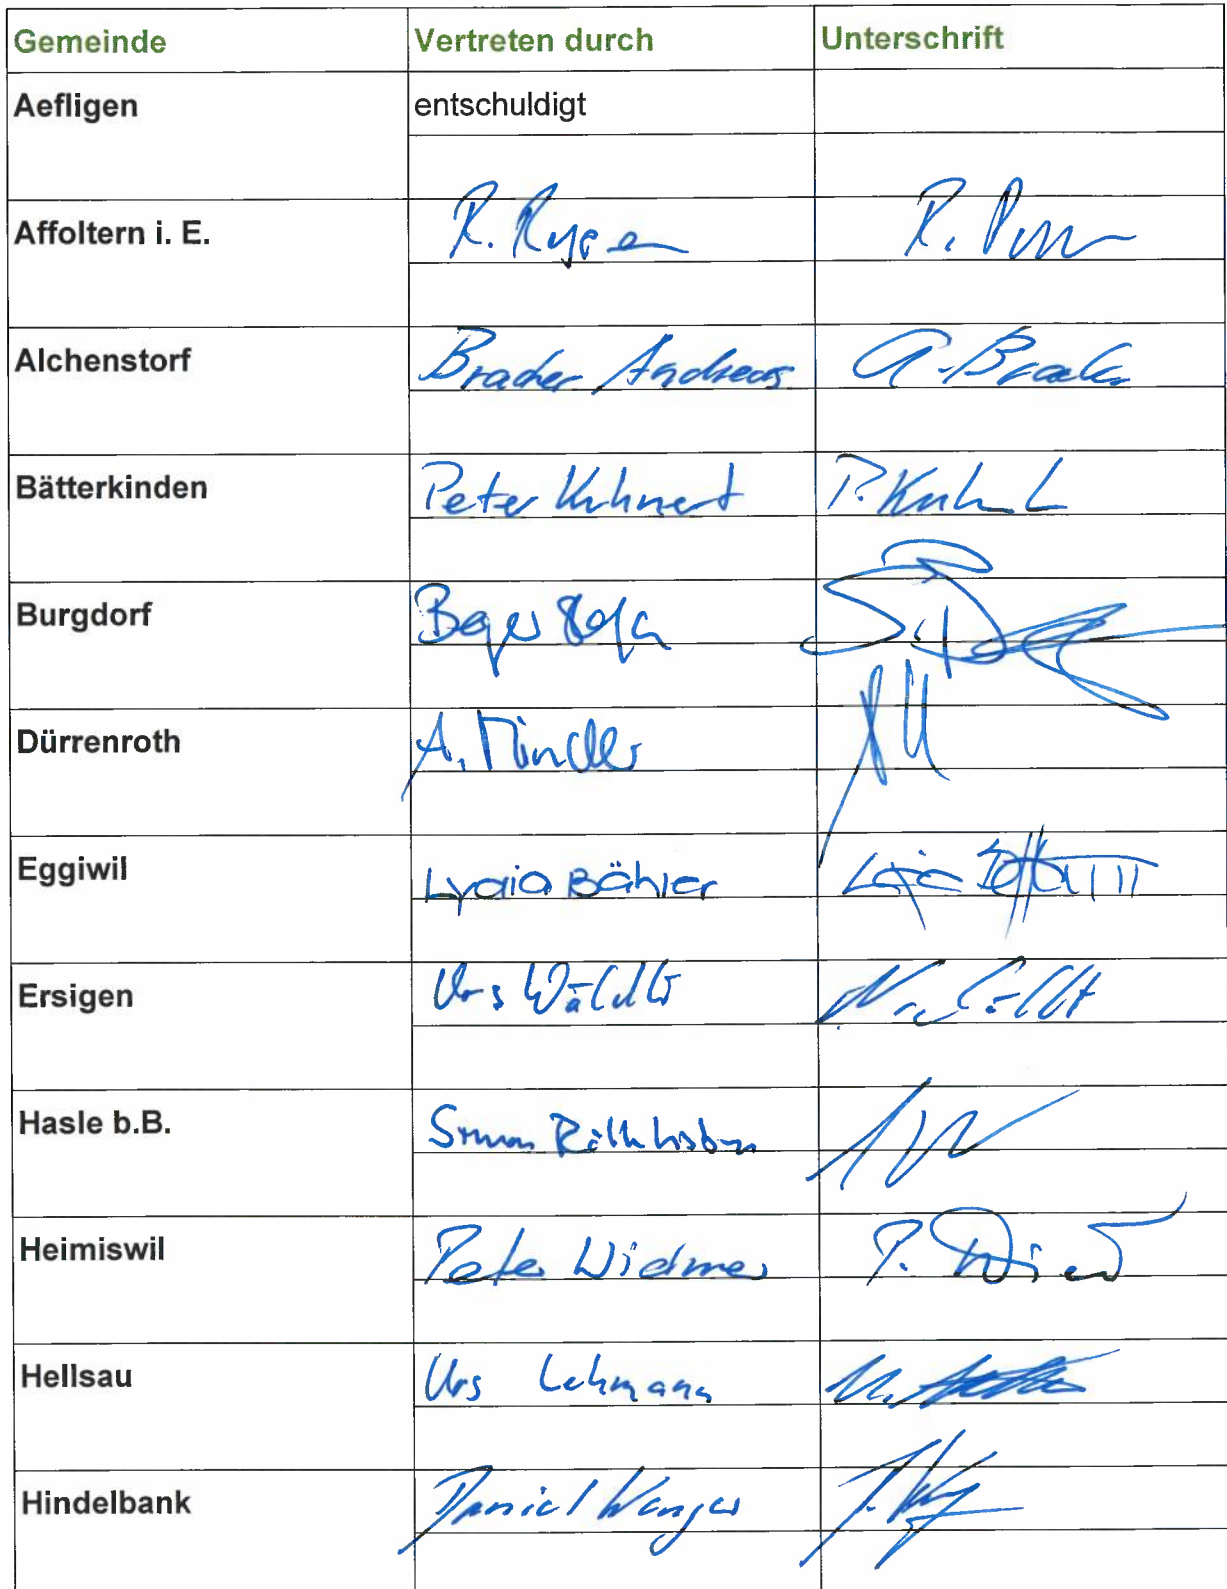 Gemeinde Vertreten durch Unterschrift
Aefligen entschuldigt
Affoltern i. E. R.
Alchenstorf Bracher Andreas A. Bracher
Bätterkinden Peter Kuhnert P. Kuhnert
Burgdorf
Dürrenroth A.
Eggiwil Lydia Bähler
Ersigen Urs Wälchli
Hasle b.B. Simon Röthlisberger
Heimiswil Peter Widmer P.
Hellsau Urs Lehmann
Hindelbank Daniel Wenger